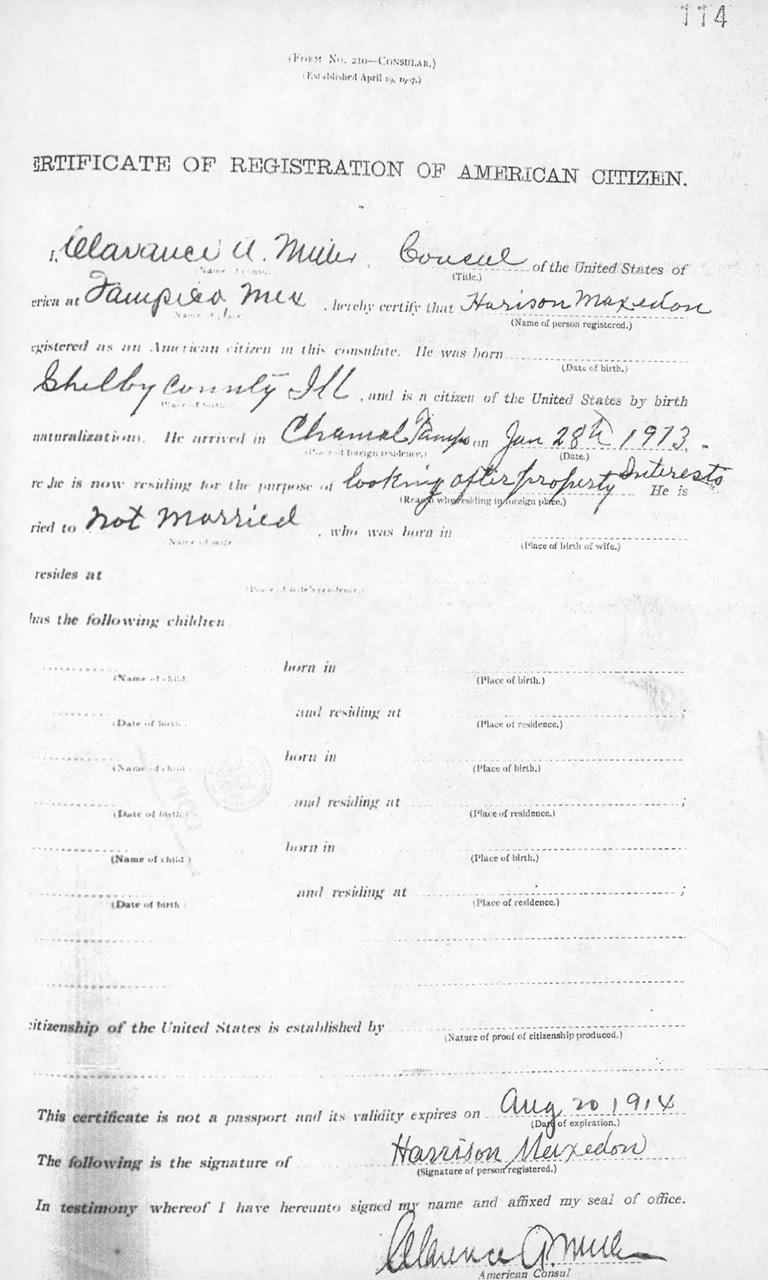 114
(FORM NO. 210—CONSULAR.)
(Established April 19, 1907.)
ERTIFICATE OF REGISTRATION OF AMERICAN CITIZEN.
I, Clarance A. Miller, Consul of the United States of
(Name of consul.) (Title.)
erica at Tampico Mex, hereby certify that Harison Maxedon
(Name of place.) (Name of person registered.)
egistered as an American citizen in this consulate. He was born
(Date of birth.)
Shelby County Ill, and is a citizen of the United States by birth
(Place of birth.)
naturalization). He arrived in Chamal Tamps on Jan 28th 1913.
(Place of foreign residence.) (Date.)
re he is now residing for the purpose of looking after property Interests He is
(Reason why residing in foreign place.)
ried to not Married, who was born in
(Name of wife.) (Place of birth of wife.)
resides at
(Place of wife's residence.)
has the following children:
born in
(Name of child.) (Place of birth.)
and residing at ;
(Date of birth.) (Place of residence.)
born in
(Name of child.) (Place of birth.)
and residing at ;
(Date of birth.) (Place of residence.)
born in
(Name of child.) (Place of birth.)
and residing at ;
(Date of birth.) (Place of residence.)
citizenship of the United States is established by
(Nature of proof of citizenship produced.)
This certificate is not a passport and its validity expires on Aug 20 1914
(Date of expiration.)
The following is the signature of Harrison Maxedon
(Signature of person registered.)
In testimony whereof I have hereunto signed my name and affixed my seal of office.
Clarence A. Miller
American Consul